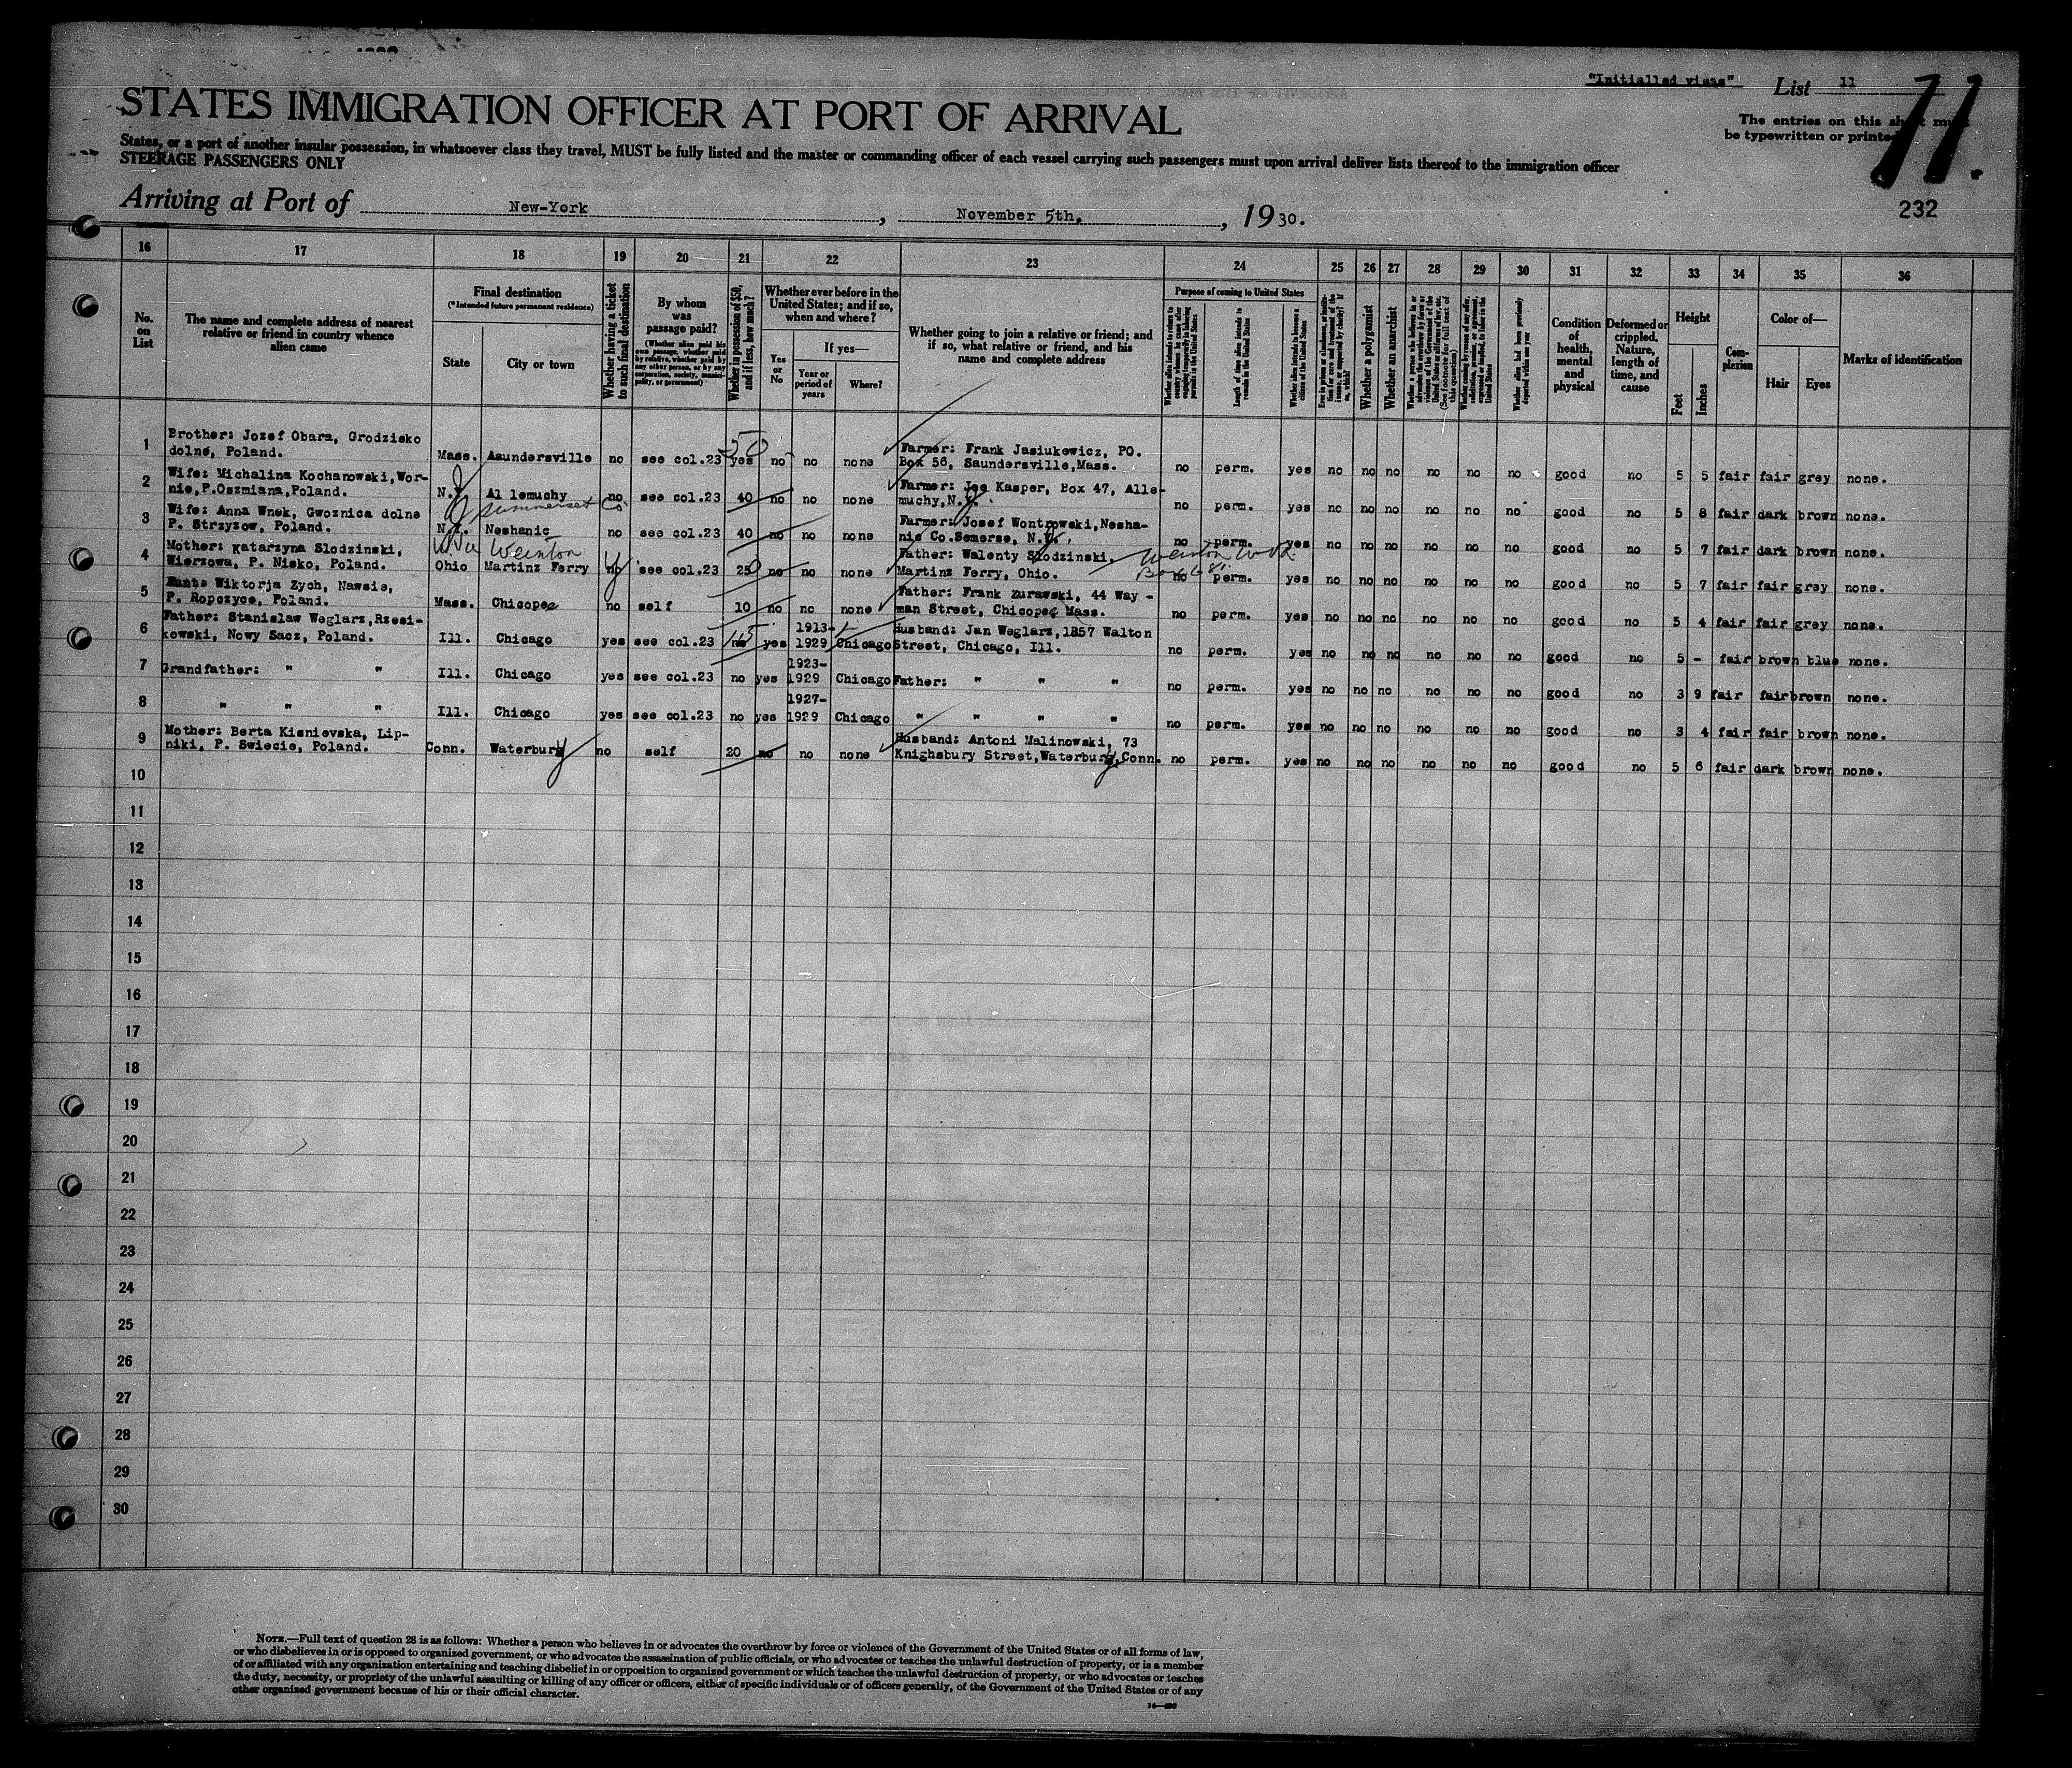 "Initialled visas" List 11
11.
STATES IMMIGRATION OFFICER AT PORT OF ARRIVAL
The entries on this sheet must
be typewritten or printed
States, or a port of another insular possession, in whatsoever class they travel, MUST be fully listed and the master or commanding officer of each vessel carrying such passengers must upon arrival deliver lists thereof to the immigration officer
STEERAGE PASSENGERS ONLY
Arriving at Port of New-York, November 5th, 1930.
232
16 17 18 19 20 21 22 23 24 25 26 27 28 29 30 31 32 33 34 35 36
No. on List
The name and complete address of nearest relative or friend in country whence alien came
Final destination
(*Intended future permanent residence)
State
City or town
Whether having a ticket to such final destination
By whom was passage paid?
(Whether alien paid his own passage, whether paid by relative, whether paid by any other person, or by any corporation, society, municipality, or government)
Whether in possession of $50, and if less, how much?
Whether ever before in the United States; and if so, when and where?
Yes or No
If yes—
Year or period of years
Where?
Whether going to join a relative or friend; and if so, what relative or friend, and his name and complete address
Purpose of coming to United States
Length of time alien intends to remain in the United States
Whether alien intends to become a citizen of the United States
Whether a polygamist
Whether an anarchist
Whether alien had been previously deported within one year
Condition of health, mental and physical
Deformed or crippled. Nature, length of time, and cause
Height
Feet
Inches
Complexion
Color of—
Hair
Eyes
Marks of identification
1 Brother: Jozef Obara, Grodzisko
dolne, Poland. Mass. Asundersville no see col.23 yes 50 no no none Farmer: Frank Jasiukewicz, PO.
Box 56, Saundersville,Mass. no perm. yes no no no no no no good no 5 5 fair fair grey none.
2 Wife: Michalina Kochanowski, Wor-
nie,P.Oszmiana,Poland. N.J. Al lemuchy no see col.23 40 no no none Farmer: Joe Kasper, Box 47, Alle-
muchy,N.J. no perm. yes no no no no no no good no 5 8 fair dark brown none.
Summerset Co
3 Wife: Anna Wnek, Gwoznica dolne
P. Strzyzow, Poland. N.J. Neshanic no see col.23 40 no no none Farmer: Josef Wontrowski,Nesha-
nic Co.Somerse, N.J. no perm. yes no no no no no no good no 5 7 fair dark brown none.
W.Va Weirton
4 Mother: Katarzyna Slodzinski,
Wierzowa, P. Nisko, Poland. Ohio Martinz Ferry no see col.23 250 no no none Father: Walenty Slodzinski.
Martinz Ferry, Ohio. Weirton W.Va. Box 681. no perm. yes no no no no no no good no 5 7 fair fair grey none.
5 Aunt: Wiktorja Zych, Nawsie,
P. Ropczyce, Poland. Mass. Chicopee no self 10 no no none Father: Frank Zurawski, 44 Way -
man Street, Chicopee Mass. no perm. yes no no no no no no good no 5 4 fair fair grey none.
6 Father: Stanislaw Weglarz,Rzesi-
kowski, Nowy Sacz, Poland. Ill. Chicago yes see col.23 no yes 1913-
1929 Chicago Husband: Jan Weglarz,1857 Walton
Street, Chicago, Ill. no perm. yes no no no no no no good no 5 - fair brown blue none.
7 Grandfather: " " Ill. Chicago yes see col.23 no yes 1923-
1929 Chicago Father: " " " no perm. yes no no no no no no good no 3 9 fair fair brown none.
8 " " " Ill. Chicago yes see col.23 no yes 1927-
1929 Chicago " " " " no perm. yes no no no no no no good no 3 4 fair fair brown none.
9 Mother: Berta Kisnievska, Lip-
niki, P. Swiecie, Poland. Conn. Waterbury no self 20 no no none Husband: Antoni Malinowski, 73
Knighsbury Street,Waterbury,Conn. no perm. yes no no no no no no good no 5 6 fair dark brown none.
10
11
12
13
14
15
16
17
18
19
20
21
22
23
24
25
26
27
28
29
30
NOTE.—Full text of question 28 is as follows: Whether a person who believes in or advocates the overthrow by force or violence of the Government of the United States or of all forms of law,
or who disbelieves in or is opposed to organized government, or who advocates the assassination of public officials, or who advocates or teaches the unlawful destruction of property, or is a member
of or affiliated with any organization entertaining and teaching disbelief in or opposition to organized government or which teaches the unlawful destruction of property, or who advocates or teaches
the duty, necessity, or propriety of the unlawful assaulting or killing of any officer or officers, either of specific individuals or of officers generally, of the Government of the United States or of any
other organized government because of his or their official character.